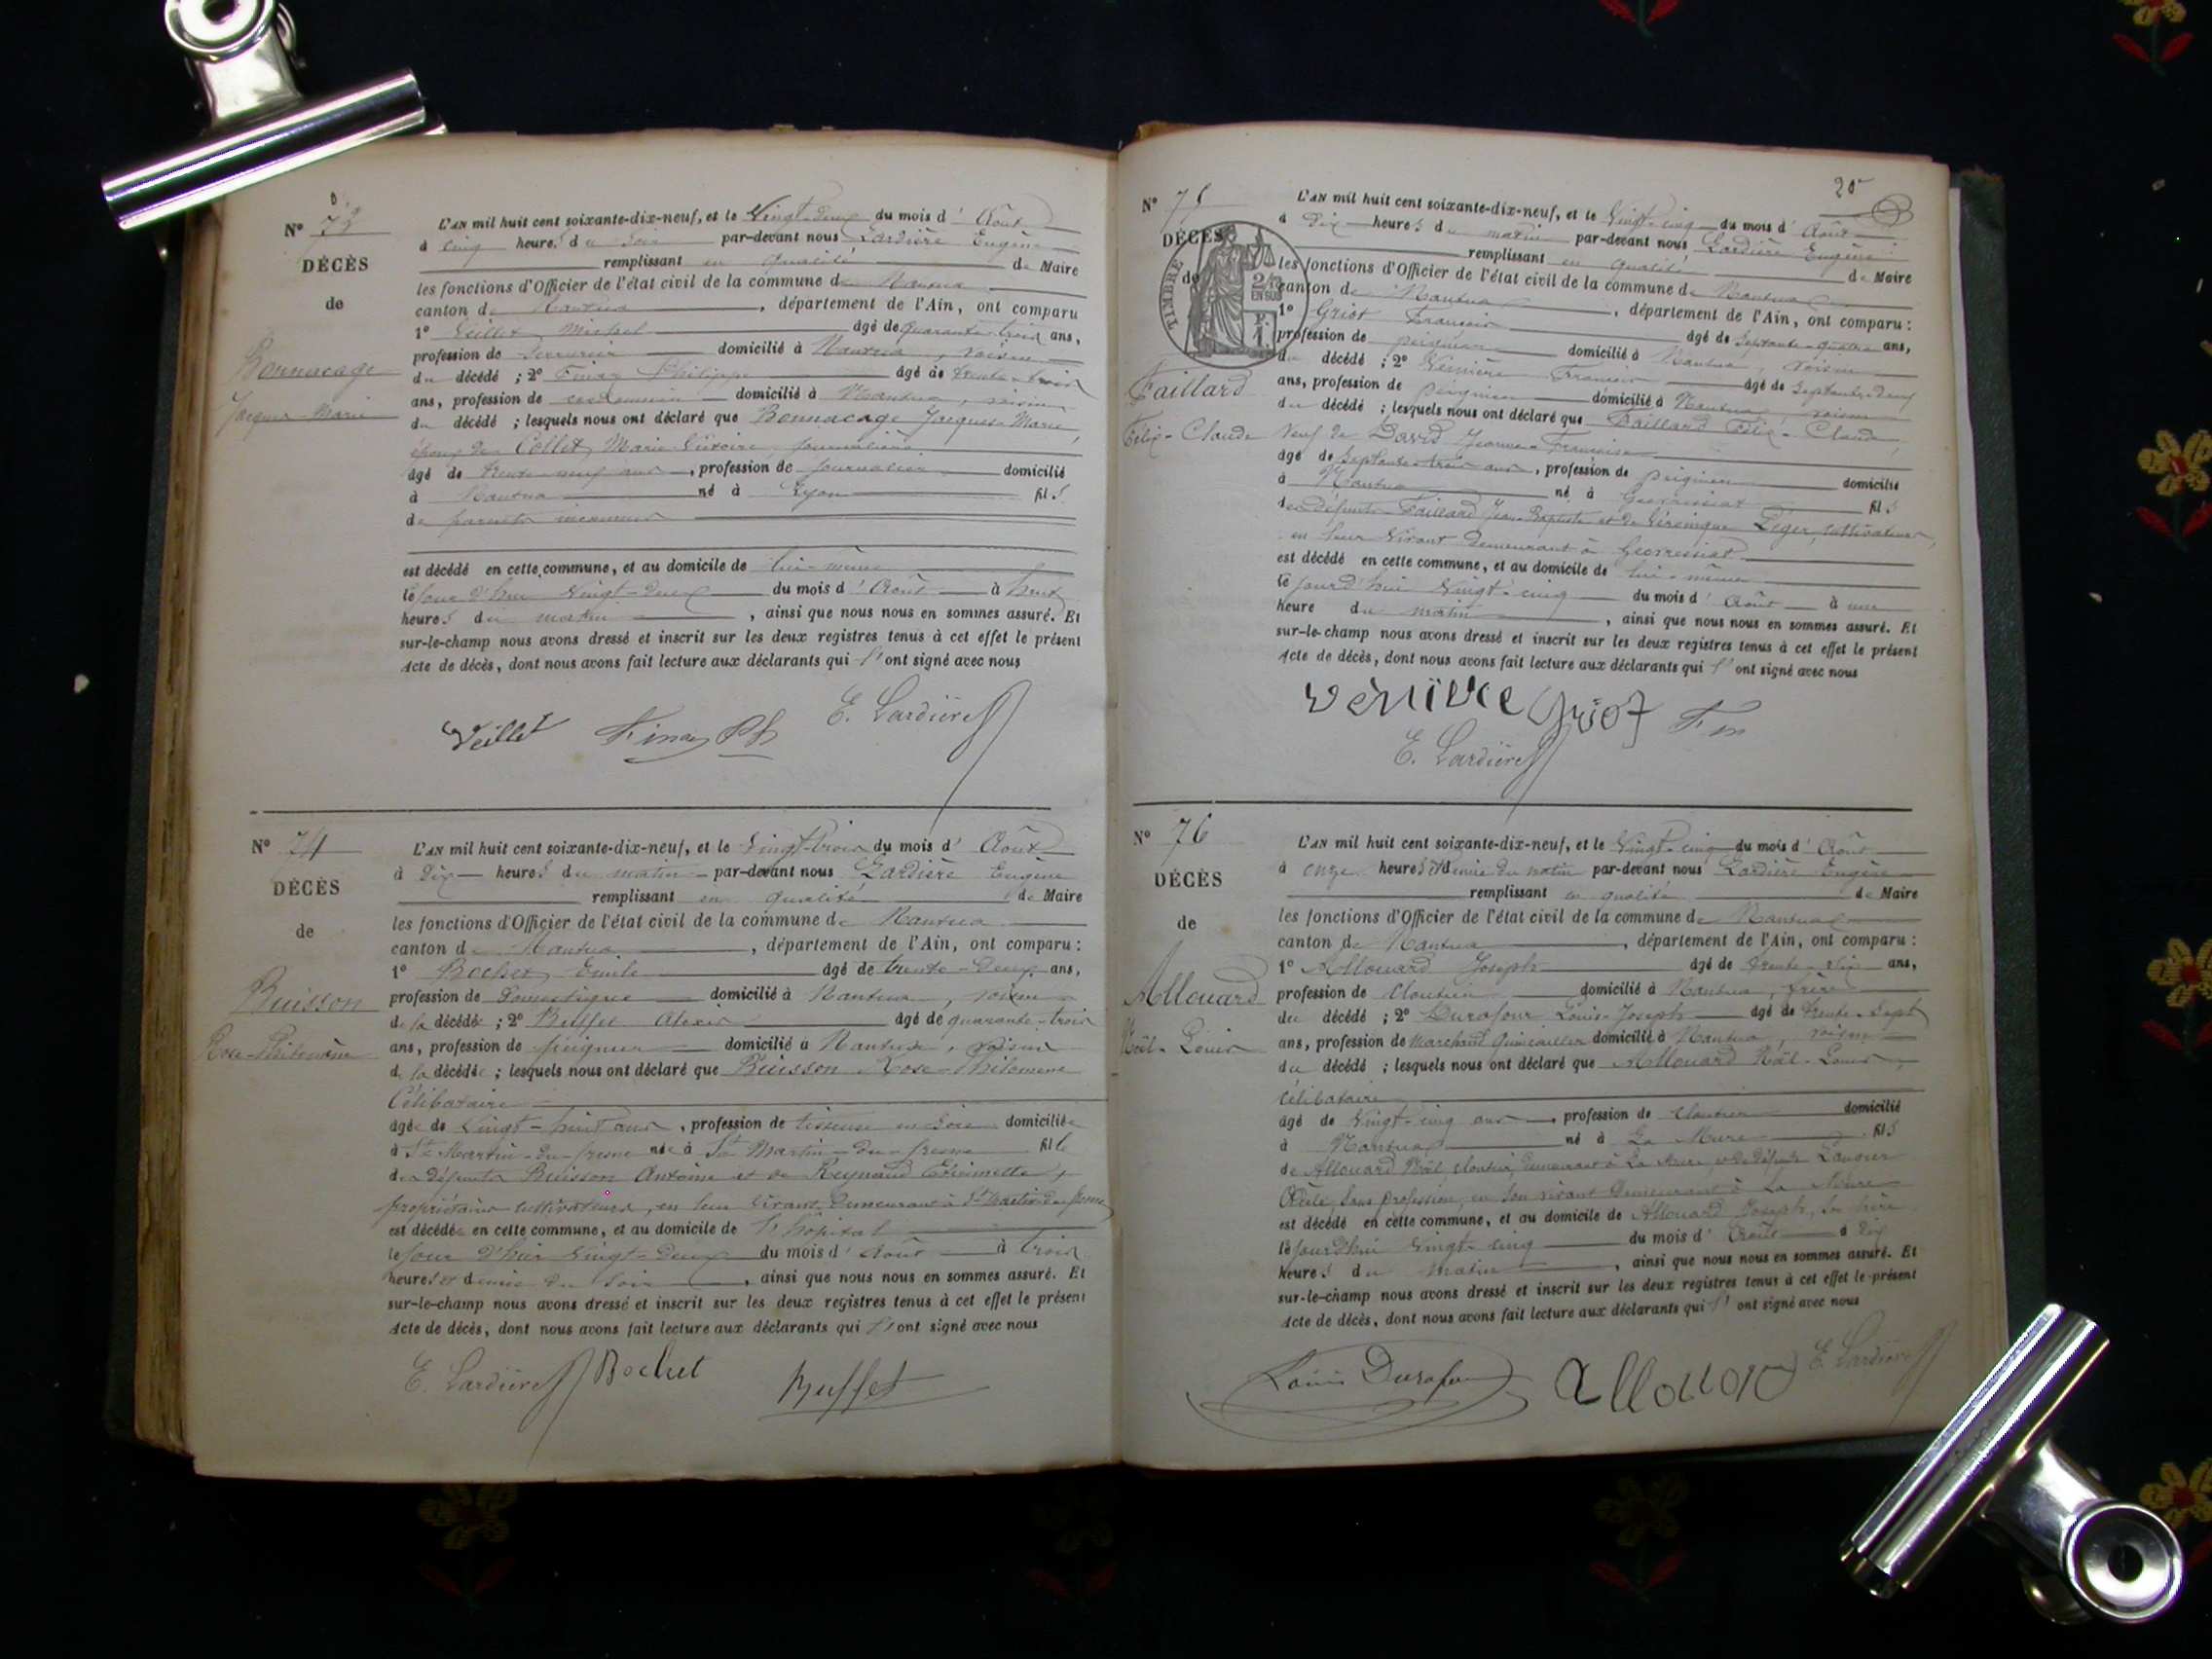 N° 73
DÉCÈS
de
Bonnacage
Jacques-Marie
L'AN mil huit cent soixante-dix-neuf, et le Vingt-deux du mois d'Août
à cinq heures du soir par-devant nous Lardière Eugène
remplissant en qualité de Maire
les fonctions d'Officier de l'état civil de la commune de Nantua
canton de Nantua, département de l'Ain, ont comparu
1° Veillet Michel âgé de quarante-trois ans,
profession de Serrurier domicilié à Nantua, voisin
du décédé ; 2° Finaz Philippe âgé de trente-trois
ans, profession de cordonnier domicilié à Nantua, voisin
du décédé ; lesquels nous ont déclaré que Bonnacage Jacques-Marie,
époux de Collet Marie Victoire, journalière
âgé de trente-neuf ans, profession de journalier domicilié
à Nantua né à Lyon fils
de parents inconnus
est décédé en cette commune, et au domicile de lui-même
le jour d'hui Vingt-deux du mois d'Août à huit
heures du matin, ainsi que nous nous en sommes assuré. Et
sur-le-champ nous avons dressé et inscrit sur les deux registres tenus à cet effet le présent
Acte de décès, dont nous avons fait lecture aux déclarants qui l'ont signé avec nous
Veillet Finaz Ph E. Lardière
N° 74
DÉCÈS
de
Buisson
Rose-Philomène
L'AN mil huit cent soixante-dix-neuf, et le Vingt-trois du mois d'Août
à Dix heures du matin par-devant nous Lardière Eugène
remplissant en qualité de Maire
les fonctions d'Officier de l'état civil de la commune de Nantua
canton de Nantua, département de l'Ain, ont comparu :
1° Bochet Emile âgé de trente-deux ans,
profession de Domestique domicilié à Nantua, voisin
de la décédée ; 2° Buffet Alexis âgé de quarante-trois
ans, profession de peigneur domicilié à Nantua, voisin
de la décédée ; lesquels nous ont déclaré que Buisson Rose-Philomène
Célibataire
âgée de Vingt-huit ans, profession de tisseuse en soie domiciliée
à St Martin-du-fresne née à St Martin-du-fresne fille
des défunts Buisson Antoine et de Reynaud Etiennette,
propriétaires cultivateurs, en leur vivant demeurant à St Martin du fresne
est décédée en cette commune, et au domicile de l'hôpital
le jour d'hier Vingt-deux du mois d'Août à trois
heures et demie du soir, ainsi que nous nous en sommes assuré. Et
sur-le-champ nous avons dressé et inscrit sur les deux registres tenus à cet effet le présent
Acte de décès, dont nous avons fait lecture aux déclarants qui l'ont signé avec nous
E. Lardière Bochet Buffet
20
N° 75
DÉCÈS
de
TIMBRE
2/10 EN SUS
Faillard
Félix-Claude
L'AN mil huit cent soixante-dix-neuf, et le Vingt-cinq du mois d'Août
à Dix heures du matin par-devant nous Lardière Eugène
remplissant en qualité de Maire
les fonctions d'Officier de l'état civil de la commune de Nantua
canton de Nantua, département de l'Ain, ont comparu :
1° Griot François âgé de Septante-quatre ans,
profession de peignier domicilié à Nantua, voisin
du décédé ; 2° Vernière François âgé de Septante-deux
ans, profession de peignier domicilié à Nantua, voisin
du décédé ; lesquels nous ont déclaré que Faillard Félix-Claude,
Veuf de David Jeanne-Françoise
âgé de Septante-trois ans, profession de peignier domicilié
à Nantua né à Geovressiat fils
des défunts Faillard Jean-Baptiste et de Véronique Léger, cultivateurs,
en leur vivant demeurant à Geovressiat
est décédé en cette commune, et au domicile de lui-même
le jourd'hui Vingt-cinq du mois d'Août à une
heure du matin, ainsi que nous nous en sommes assuré. Et
sur-le-champ nous avons dressé et inscrit sur les deux registres tenus à cet effet le présent
Acte de décès, dont nous avons fait lecture aux déclarants qui l'ont signé avec nous
Griot
E. Lardière
N° 76
DÉCÈS
de
Allouard
Noël-Louis
L'AN mil huit cent soixante-dix-neuf, et le Vingt-cinq du mois d'Août
à onze heures et demie du matin par-devant nous Lardière Eugène
remplissant en qualité de Maire
les fonctions d'Officier de l'état civil de la commune de Nantua
canton de Nantua, département de l'Ain, ont comparu :
1° Allouard Joseph âgé de trente-six ans,
profession de cloutier domicilié à Nantua, frère
du décédé ; 2° Durafour Louis-Joseph âgé de trente-sept
ans, profession de Marchand quincailler domicilié à Nantua, voisin
du décédé ; lesquels nous ont déclaré que Allouard Noël-Louis,
célibataire
âgé de Vingt-cinq ans, profession de cloutier domicilié
à Nantua né à La Mure fils
de Allouard Noël, cloutier, demeurant à La Mure et de défunte
sans profession, en son vivant demeurant à La Mure
est décédé en cette commune, et au domicile de Allouard Joseph, son frère
le jourd'hui Vingt-cinq du mois d'Août à dix
heures du matin, ainsi que nous nous en sommes assuré. Et
sur-le-champ nous avons dressé et inscrit sur les deux registres tenus à cet effet le présent
Acte de décès, dont nous avons fait lecture aux déclarants qui l'ont signé avec nous
Louis Durafour Allouard E. Lardière